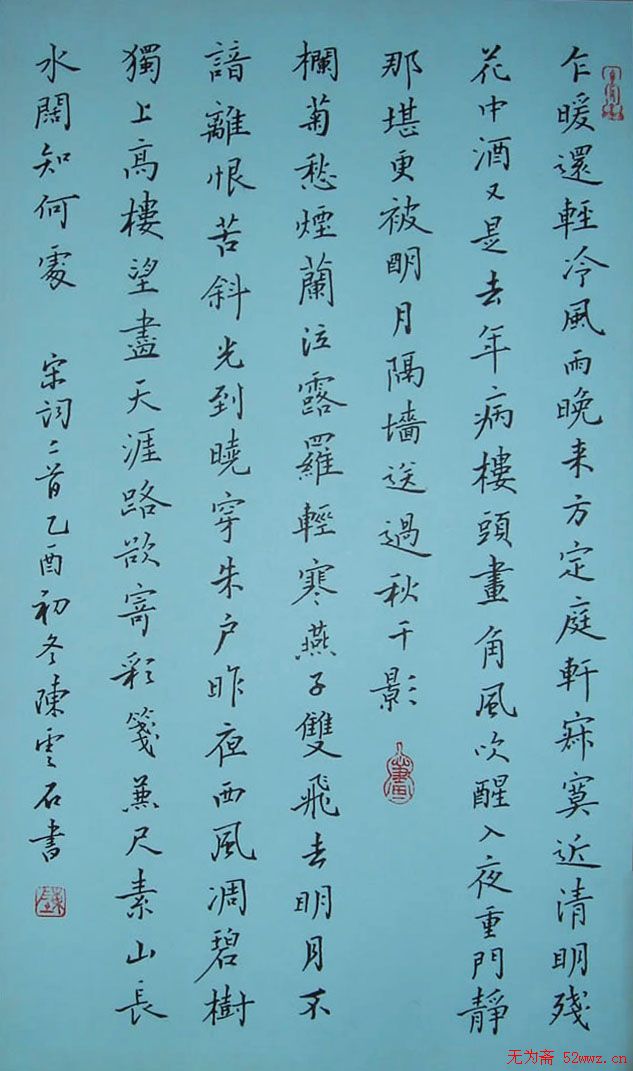 乍暖還輕冷風雨晚来方定庭軒寂寞近清明残
花中酒又是去年病樓頭畫角風吹醒入夜重門靜
那堪更被明月隔墻送過秋千影
欄菊愁煙蘭泣露羅輕寒燕子雙飛去明月不
諳離恨苦斜光到曉穿朱户昨夜西風凋碧樹
獨上高樓望盡天涯路欲寄彩箋兼尺素山長
水闊知何處 宋詞二首乙酉初冬陳雲石書
无为斋 52wwz.cn